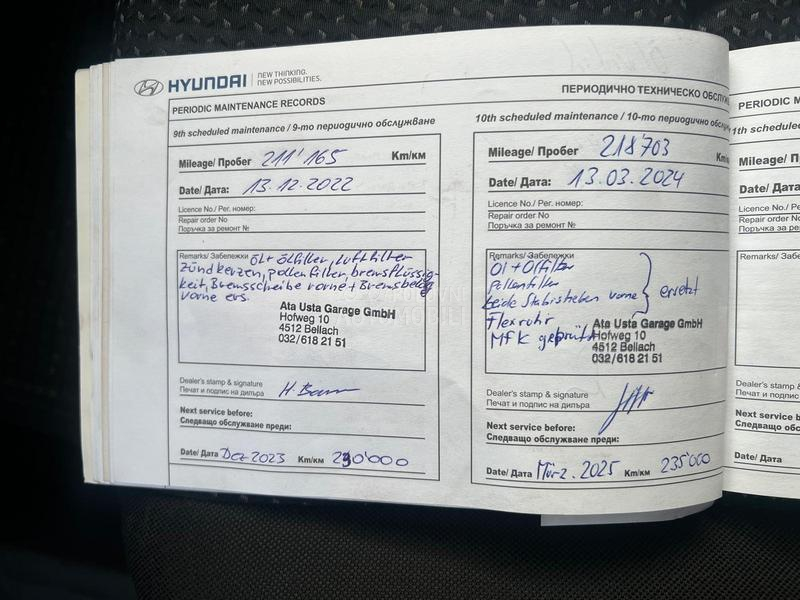 HYUNDAI
NEW THINKING.
NEW POSSIBILITIES.
PERIODIC MAINTENANCE RECORDS
ПЕРИОДИЧНО ТЕХНИЧЕСКО ОБСЛУ
9th scheduled maintenance / 9-то периодично обслужване
Mileage/ Пробег 211'165 Km/км
Date/ Дата: 13.12.2022
Licence No./ Рег. номер:
Repair order No
Поръчка за ремонт №
Remarks/ Забележки
Öl + ölfilter, Luftfilter
Zündkerzen, pollenfilter, bremsflüssig-
keit, Bremsscheibe vorne + Bremsbelag
vorne ers.
Ata Usta Garage GmbH
Hofweg 10
4512 Bellach
032/618 21 51
Dealer's stamp & signature
Печат и подпис на дилъра
Next service before:
Следващо обслужване преди:
Date/ Дата Dez 2023 Km/км 230'000
10th scheduled maintenance / 10-то периодично обслу
Mileage/ Пробег 218'703 Km/
Date/ Дата: 13.03.2024
Licence No./ Рег. номер:
Repair order No
Поръчка за ремонт №
Remarks/ Забележки
Öl + Ölfilter
Pollenfilter
beide Stabistreben vorne ersetzt
Flexrohr
MFK geprüft
Ata Usta Garage GmbH
Hofweg 10
4512 Bellach
032/618 21 51
Dealer's stamp & signature
Печат и подпис на дилъра
Next service before:
Следващо обслужване преди:
Date/ Дата März. 2025 Km/км 235'000
PERIODIC MA
11th scheduled
Mileage/ П
Date/ Дата
Licence No./ Рег
Repair order No
Поръчка за рем
Remarks/ Забел
Dealer's stamp &
Печат и подпис
Next service b
Следващо обс
Date/ Дата